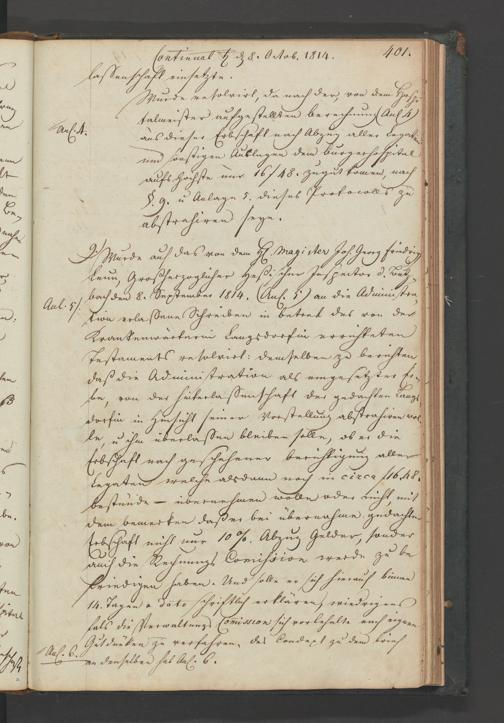 Continuat. d. 8. Octob. 1814.
401.
lassenschaft einsetzte.
Wurde resolvirt, da nach der, von dem Hospi-
talmeister aufgestellten berechnung (Anl. 4)
Anl. 4.
aus dieser Erbschaft nach Abzug aller Legaten
und sonstigen Auslagen dem burgerhospital
aufs höchste nur 16/48. zugut komen, nach
§. 9. u Anlage 5. dieses Protocolls zu
abstrahiren seye.
Wurde auf das von dem H. Magister Joh. Georg
Großherzoglicher Heß. Inspector
bach den 8. September 1814. (Anl. 5) an die Administra-
Anl. 5/
tion erlaßene Schreiben in betref des von der
Krankenwärterin Langsdorfin errichteten
Testaments resolvirt: demselben zu berichten
daß die Administration als eingesetzter Er-
be, von der hinterlassenschaft der gedachten Langs-
dorfin in hinsicht seiner Vorstellung abstrahiren wol-
le, u ihm überlaßen bleiben solle, ob er die
Erbschaft nach geschehener berichtigung aller
Legaten welche alsdann noch in circa f16.48.
bestünde – übernehmen wolle oder nicht, mit
dem bemerken daß er bei übernahme gedachter
Erbschaft nicht nur 10 % Abzug Gelder, sonder
auch die Rechnungs Comission werde zu be-
friedigen haben. Und solle er sich hierauf binnen
14. Tagen a dato schriftlich erklären, widrigen-
falls die Verwaltungs Comission sich vorbehalte nach eigenem
Gutdünken zu verfahren, das Concept zu dem brief
Anl. 6.
an denselben sub Anl. 6.